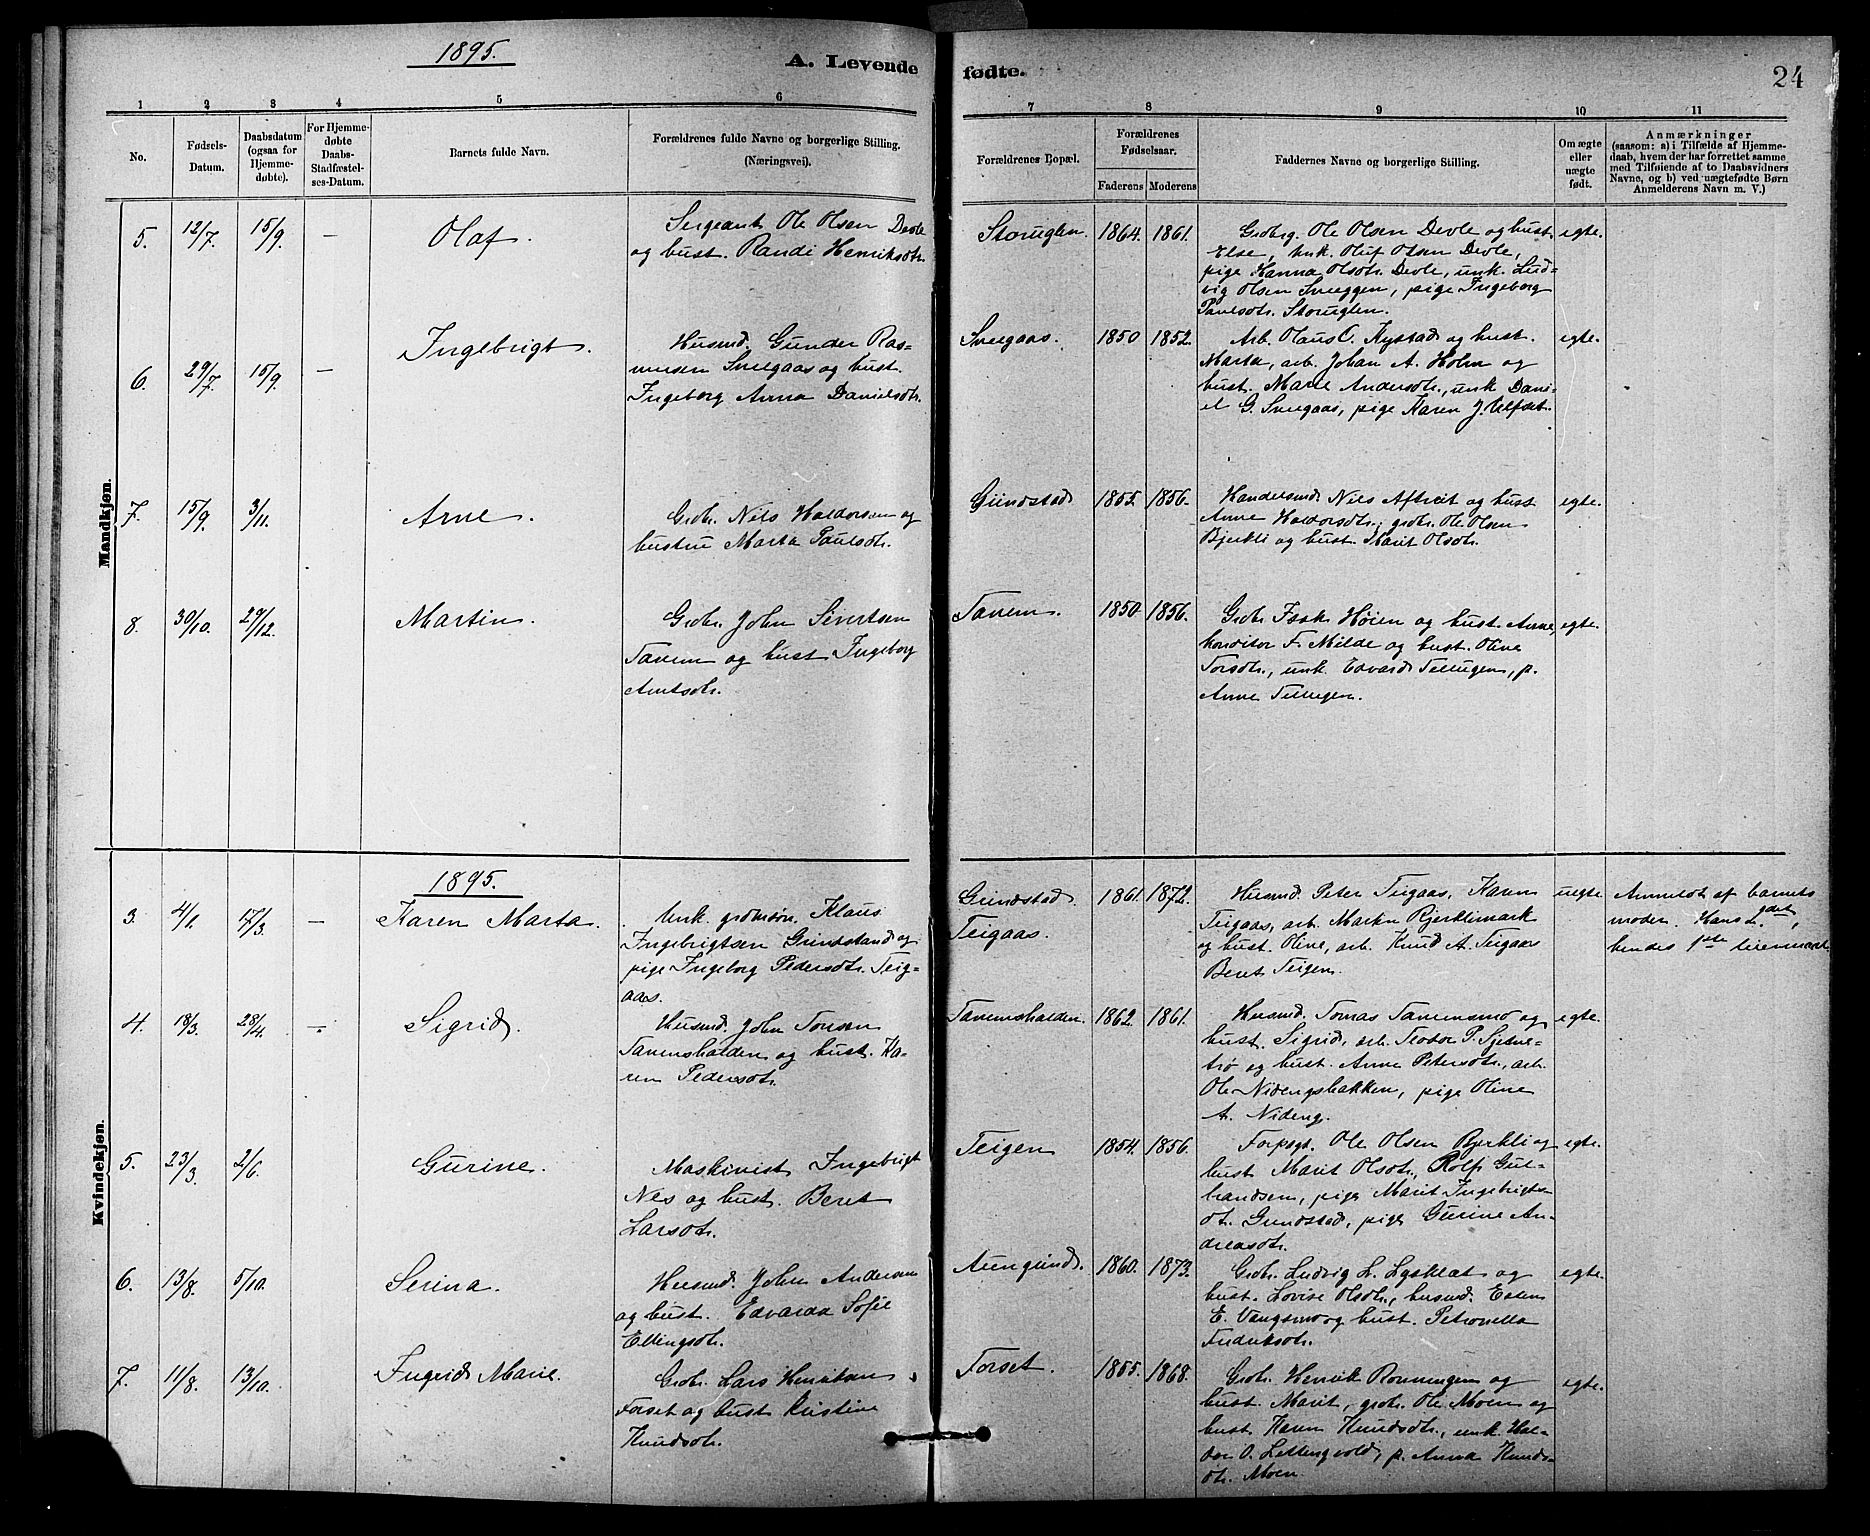 1895.
A. Levende
fødte.
24
1
2
3
4
5
6
7
8
9
10
11
No.
Fødsels-
Datum.
Daabsdatum
(ogsaa for
Hjemme-
døbte).
For Hjemme-
døbte
Daabs-
Stadfæstel-
ses-Datum.
Barnets fulde Navn.
Forældrenes fulde Navne og borgerlige Stilling.
(Næringsvei).
Forældrenes Bopæl.
Forældrenes
Fødselsaar.
Faderens
Moderens
Faddernes Navne og borgerlige Stilling.
Om ægte
eller
uægte
født.
Anmærkninger
(saasom: a) i Tilfælde af Hjemme-
daab, hvem der har forrettet samme
med Tilføiende af to Daabsvidners
Navne, og b) ved uægtefødte Børn
Anmelderens Navn m. V.)
Mandkjøn.
5. 12/7. 15/9. — Olaf.
Sergeant Ole Olsen Devle
og hust. Randi Henriksdtr.
Storuglen. 1864. 1861.
Grdbrg. Ole Olsen Devle og hust.
Else, unk. Oluf Olsen Devle,
pige Hanna Olsdtr. Devle, unk. Lud-
vig Olsen Sneeggen, pige Ingeborg
Paulsdtr. Storuglen.
egte.
6. 29/7. 15/9. — Ingebrigt.
Husmd. Gunder Ras-
mussen Sneegaas og hust.
Ingeborg Anna Danielsdtr.
Sneegaas. 1850 1852.
Arb. Olaus C. Nystad og hust.
Marta, arb. Johan A. Holm og
hust. Marte Andersdtr., unk. Dani-
el G. Sneegaas, pige Karen J. Ulfset.
egte.
7. 15/9. 3/11. Arne.
Grdbr. Nils Haldorsen og
hustru Marta Paulsdtr.
Grindstad 1855. 1856.
Handelsmd. Nils Aftreit og hust
Anne Haldorsdtr., grdbr. Ole Olsen
Bjerkli og hust. Marit Olsdtr.
egte.
8. 30/10. 29/12. Martin.
Grdbr. John Sivertsen
Tanem og hust Ingeborg
Arntsdtr.
Tanem. 1850. 1856.
Grdbr. Isak Høien og hust Anne,
konditor F. Milde og hust. Oline
Torsdtr., unk. Edvard Tellugen, p.
Anne Tellugen.
egte.
Kvindekjøn.
1895.
3. 4/1. 17/3. — Karen Marta.
Unk. grdmsøn Klaus
Ingebrigtsen Grindstand og
pige Ingeborg Pedersdtr. Teig-
aas.
Grindstad
Teigaas.
1861. 1872.
Husmd. Peter Teigaas, Karen
Teigaas, arb. Martin Bjerklimark
og hust. Oline, arb. Knud A. Teigaas
Beret Teigen.
uegte
Anmeldt af barnets
moder. Hans 2det,
hendes 1ste leiermaal.
4. 18/3. 28/4. — Sigrid.
Husmd. John Tonsen
Tanemshalden og hust. Ka-
ren Pedersdtr.
Tanemshalden. 1862. 1861.
Husmd. Tomas Tanemsmo og
hust. Sigrid, arb. Teodor P. Sjetne-
trø og hust. Anne Petersdtr., arb.
Ole Nidengsbakken, pige Oline
A. Nideng.
egte.
5. 23/3. 2/6. Gurine.
Maskinist Ingebrigt
Nes og hust. Beret
Larsdtr.
Teigen 1854. 1856.
Forpagt. Ole Olsen Bjerkli og
hust Marit Olsdtr., Rolf Gul-
brandsen, pige Marit Ingebrigts-
dt. Grindstad, pige Gurine An-
dreasdtr.
egte.
6. 13/8. 5/10. Serina.
Husmd. John Andersen
og hust. Edvarda Sofie
Ellingsdtr.
Aungrind. 1860. 1873.
Grdbr. Ludvig L. Lysklæt og
hust. Lovise Olsdtr., husmd. Esten
E. Vangsmo og hust. Petronella
Fredriksdtr.
egte.
7. 11/8. 13/10. Ingrid Marie.
Grdbr. Lars Henriksen
Forset og hust Kristine
Knudsdtr.
Forset. 1855. 1868.
Grdbr. Henrik Rønningen og
hust. Marit, grdbr. Ole Moen og
hust. Karen Knudsdtr., unk. Hal-
dor O. Lettingvold, p. Anna Knuds-
dtr. Moen.
egte.